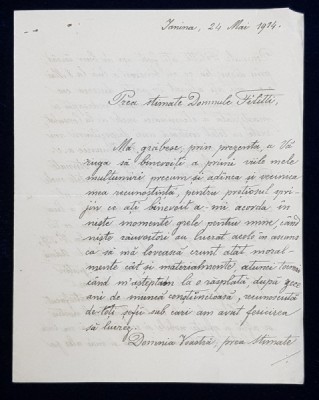 Ianina, 24 Mai 1914.
Prea stimate Domnule Filitti,
Mă grăbesc, prin prezenta, a Vă
ruga să binevoiți a primi viile mele
mulțumiri precum și adânca și vecinica
mea recunoștință, pentru prețiosul spri-
jin ce ați binevoit a-mi acorda în
niște momente grele pentru mine, când
niște răuvoitori au lucrat acolo în ascuns
ca să mă lovească crunt atât moral-
mente cât și materialmente, atunci tocmai
când m'așteptam la o răsplată, după
ani de muncă conștiincioasă, recunoscută
de toți șefii sub cari am avut fericirea
să lucrez.
Domnia Voastră, prea stimate